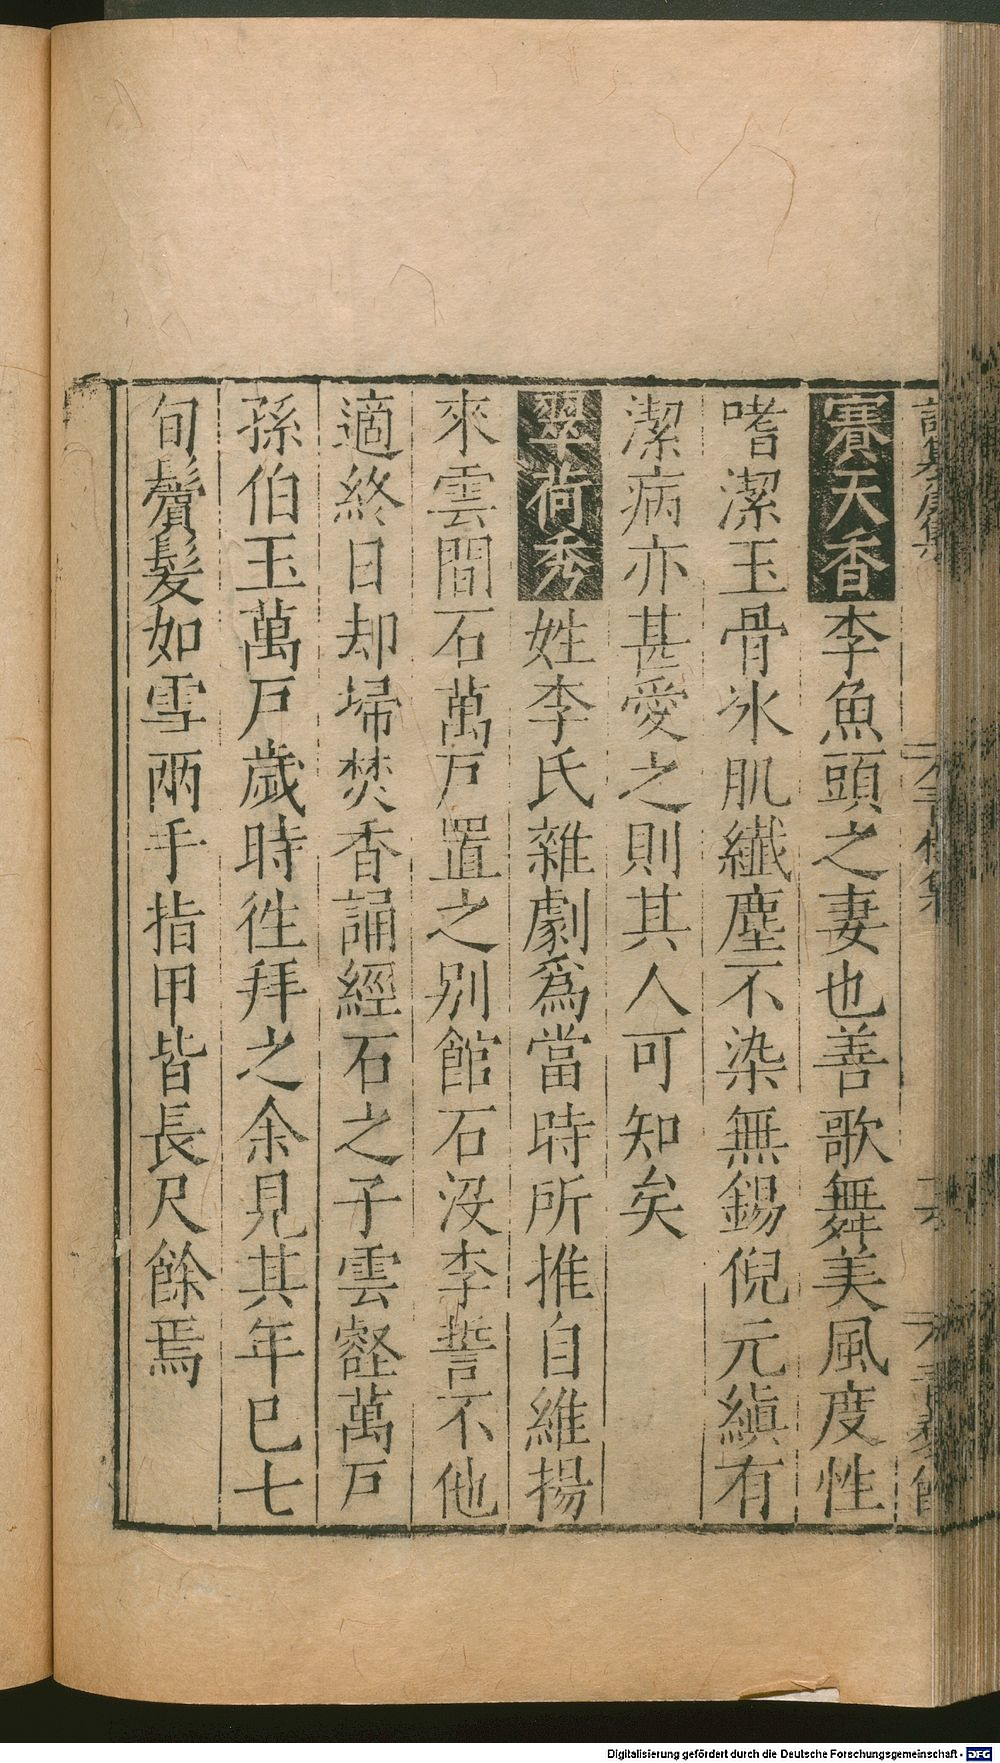 賽天香李魚頭之妻也善歌舞美風度性
嗜潔玉骨氷肌纎塵不染無錫倪元縝有
潔病亦甚愛之則其人可知矣
翠荷秀姓李氏雜劇爲當時所推自維揚
來雲間石萬戸置之别館石沒李誓不他
適終日却埽焚香誦經石之子雲壑萬戸
孫伯玉萬戸歲時徃拜之余見其年巳七
旬鬢髮如雪兩手指甲皆長尺餘焉
Digitalisierung gefördert durch die Deutsche Forschungsgemeinschaft - DFG